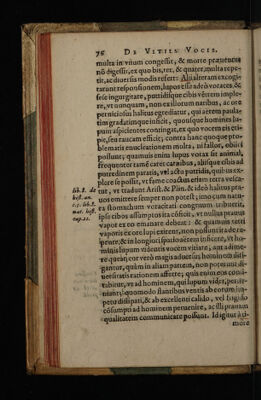 76 DE VITIIS VOCIS.
multa in vnum congessit, & morte præuentus
nō digessit, ex quo bis, ter, & quater, multa repe-
tit, ac diuersis modis refert: Alij alteram excogi-
tarunt responsionem, lupos esse adeò voraces, &
sese ingurgitare, putridísque cibis ventrem imple-
re, vt nunquam, non ex illorum naribus, ac ore
perniciosus halitus egrediatur, qui aërem paula-
tim gradatímque inficit, quousque homines lu-
pum aspicientes contingat, ex quo vocem eis eri-
pit, seu raucam efficit; contra hanc quoque pro-
blematis enucleationem multa, ni fallor, obiici
possunt; quamuis enim lupus vorax sit animal,
frequenter tamē caret carnibus, aliísque cibis ad
putredinem paratis, vel acto putridis, quibus ex-
plere se possit, vt fame coactus etiam terra vesca-
tur, vt tradunt Arist. & Plin. & ideò halitus pra-
uos emittere semper non potest; imo cum natu-
ra stomachum voracitati congruum tribuerit,
ipsis cibos assumptos ita cōficit, vt nullus prauus
vapor ex eo emanare debeat: & quamuis tetri
vapores ex ore lupi exirent, non possunt ita de re-
pente, & in longiqui spatio aërem inficere, vt ho-
minis lupum videntis vocem vitiare, aut adime-
re queat; cor verò magis aduersus hominē diri-
gantur, quàm in aliam partem, non potest eui-
tabitur, vt ad hominem, qui lupum videt, perue-
niant; quomodo flantibus ventis ab eorum im-
petu dissipati, & ab excellenti calido, vel frigido
cōsumpti ad hominem peruenire, ac illi prauam
qualitatem communicare possunt. Id igitur ti-
more
lib. 8. de
hist. an.
c. 5. lib. 8.
nat. hist.
cap. 22.